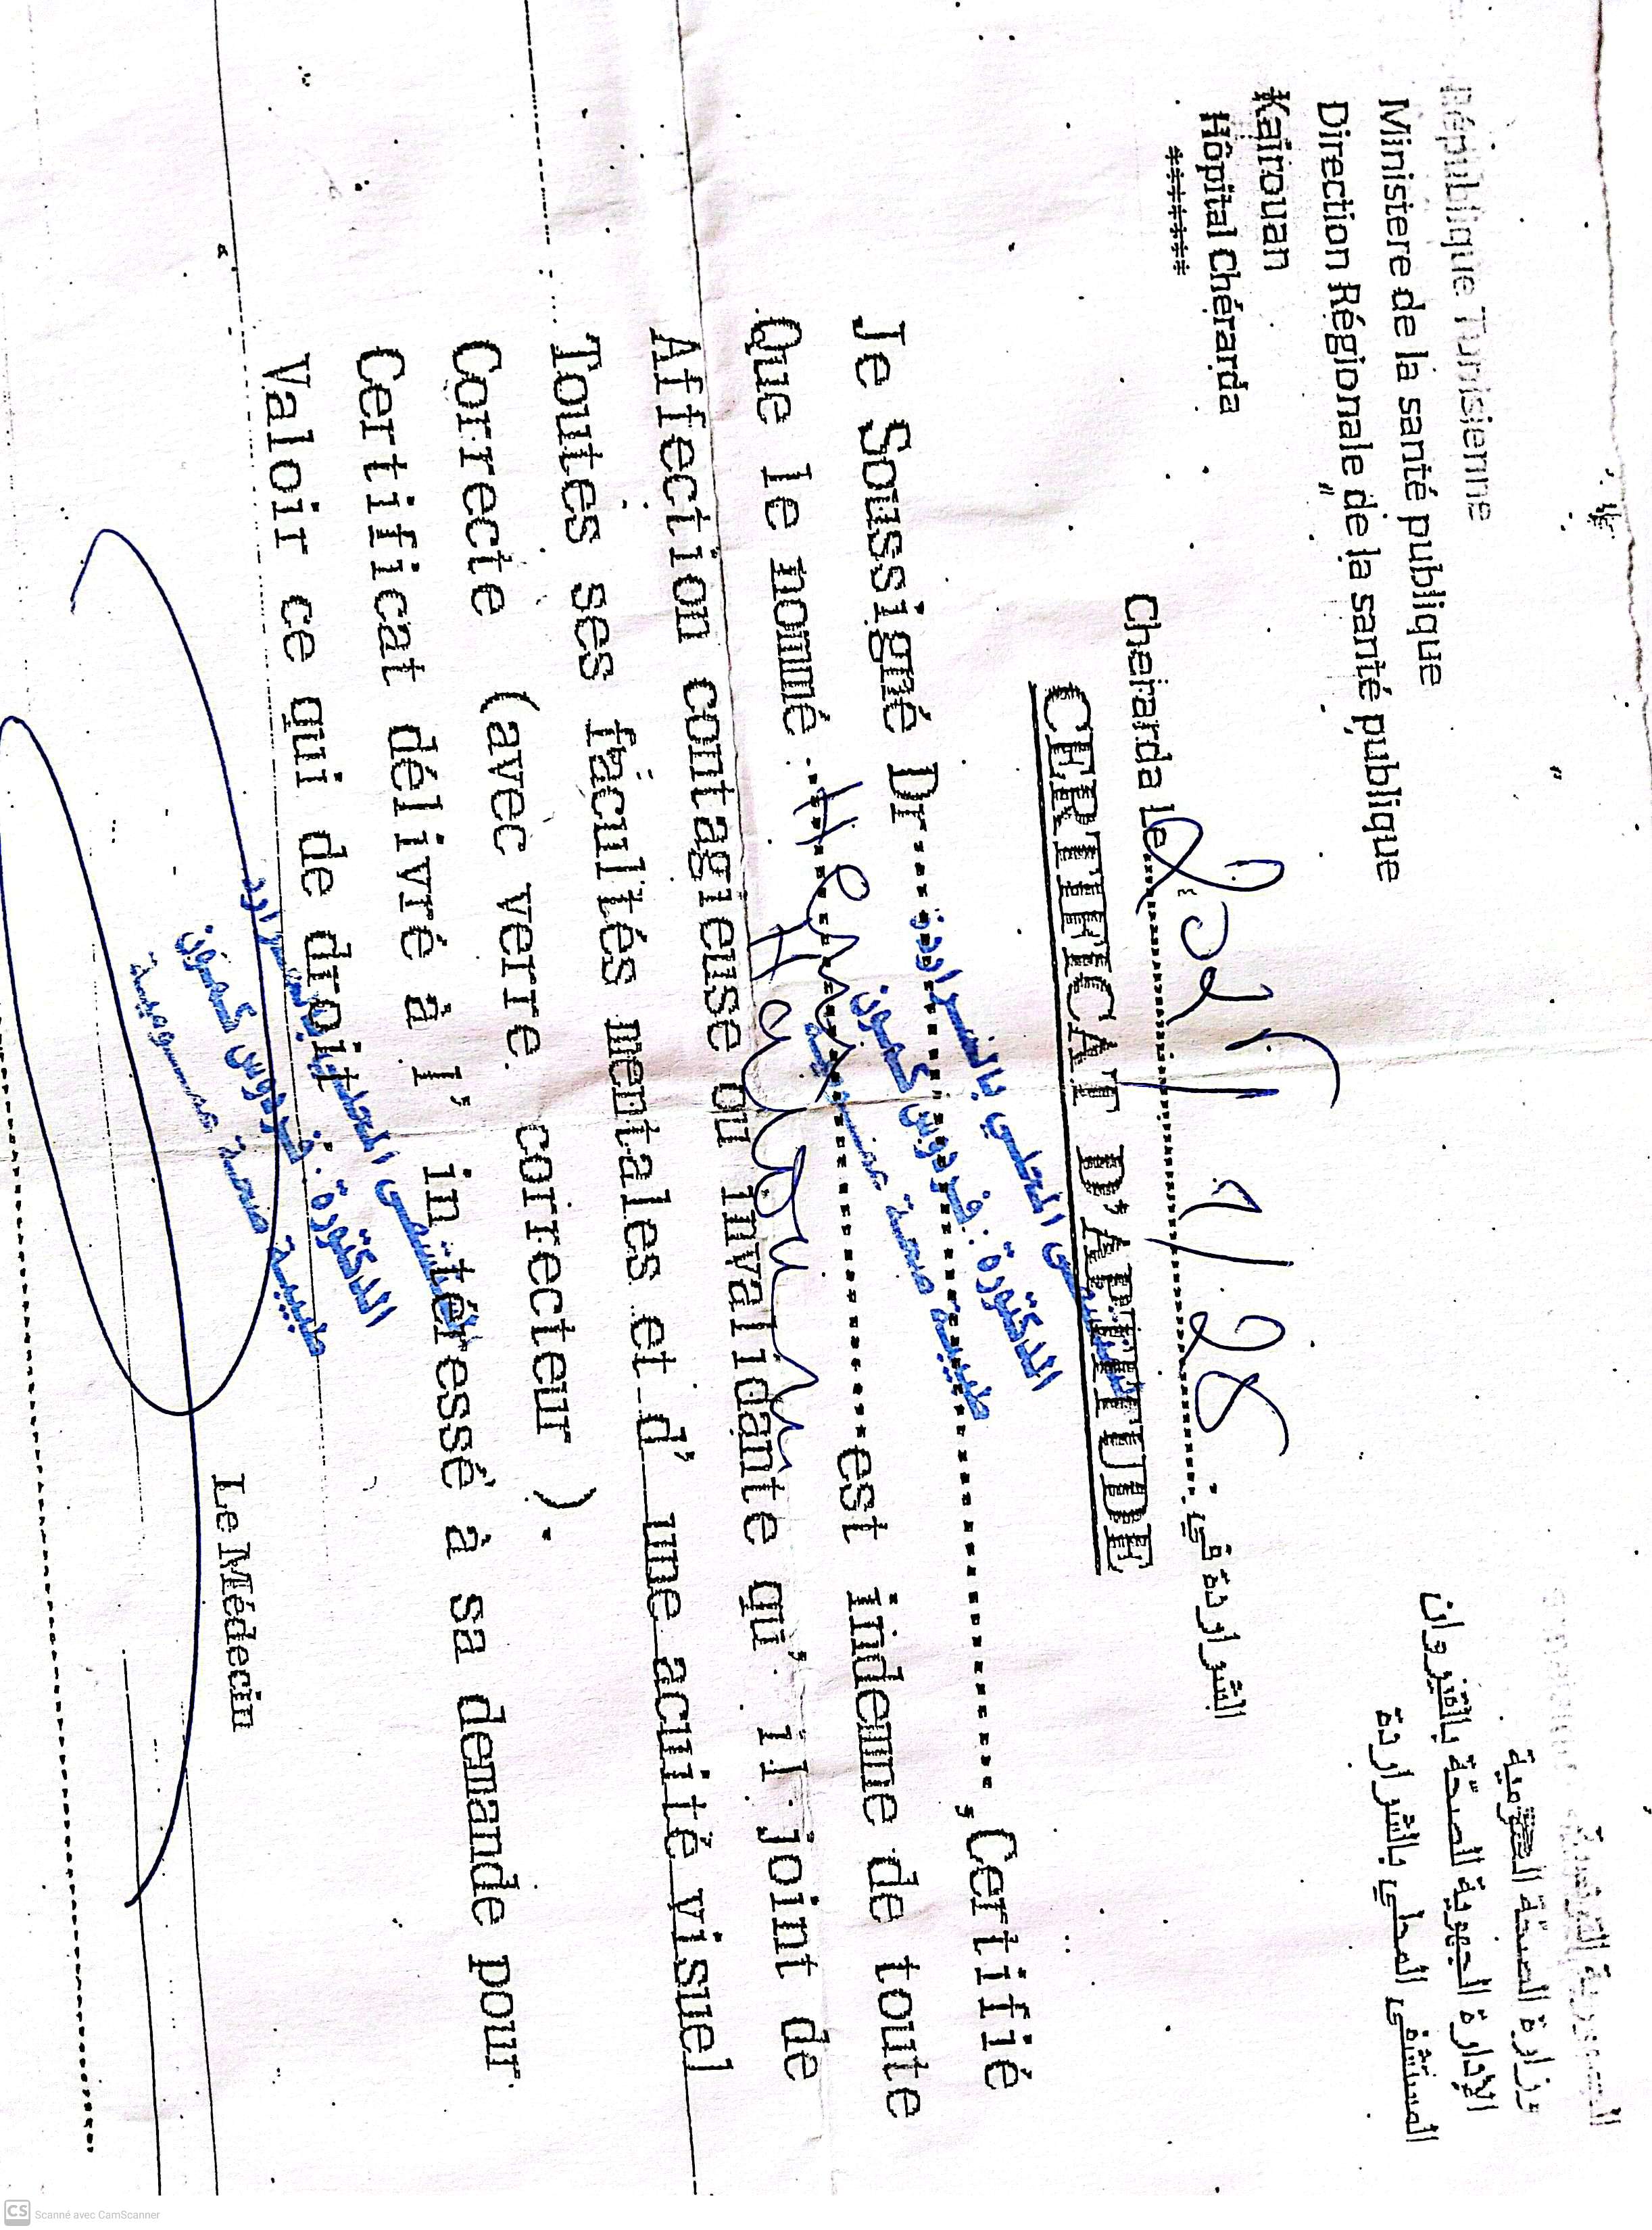 République Tunisienne
Ministere de la santé publique
Direction Régionale de la santé publique
Kairouan
Hôpital Chérarda
*******
الجمهورية التونسية
وزارة الصحّة العمومية
الإدارة الجهوية للصحّة بالقيروان
المستشفى المحلي بالشراردة
Cheirarda Le
الشراردة في :
CERTIFICAT D'APTITUDE
المستشفى المحلي بالشراردة
الدكتورة : فردوس كمون
طبيبة صحة عمومية
Je Soussigné Dr , Certifié
Que le nommé est indemne de toute
Affection contagieuse ou invalidante qu' il joint de
Toutes ses facultés mentales et d' une acuité visuel
Correcte (avec verre correcteur ).
Certificat délivré à l' intéressé à sa demande pour
Valoir ce qui de droit.
المستشفى المحلي بالشراردة
الدكتورة : فردوس كمون
طبيبة صحة عمومية
Le Médecin
CS Scanné avec CamScanner